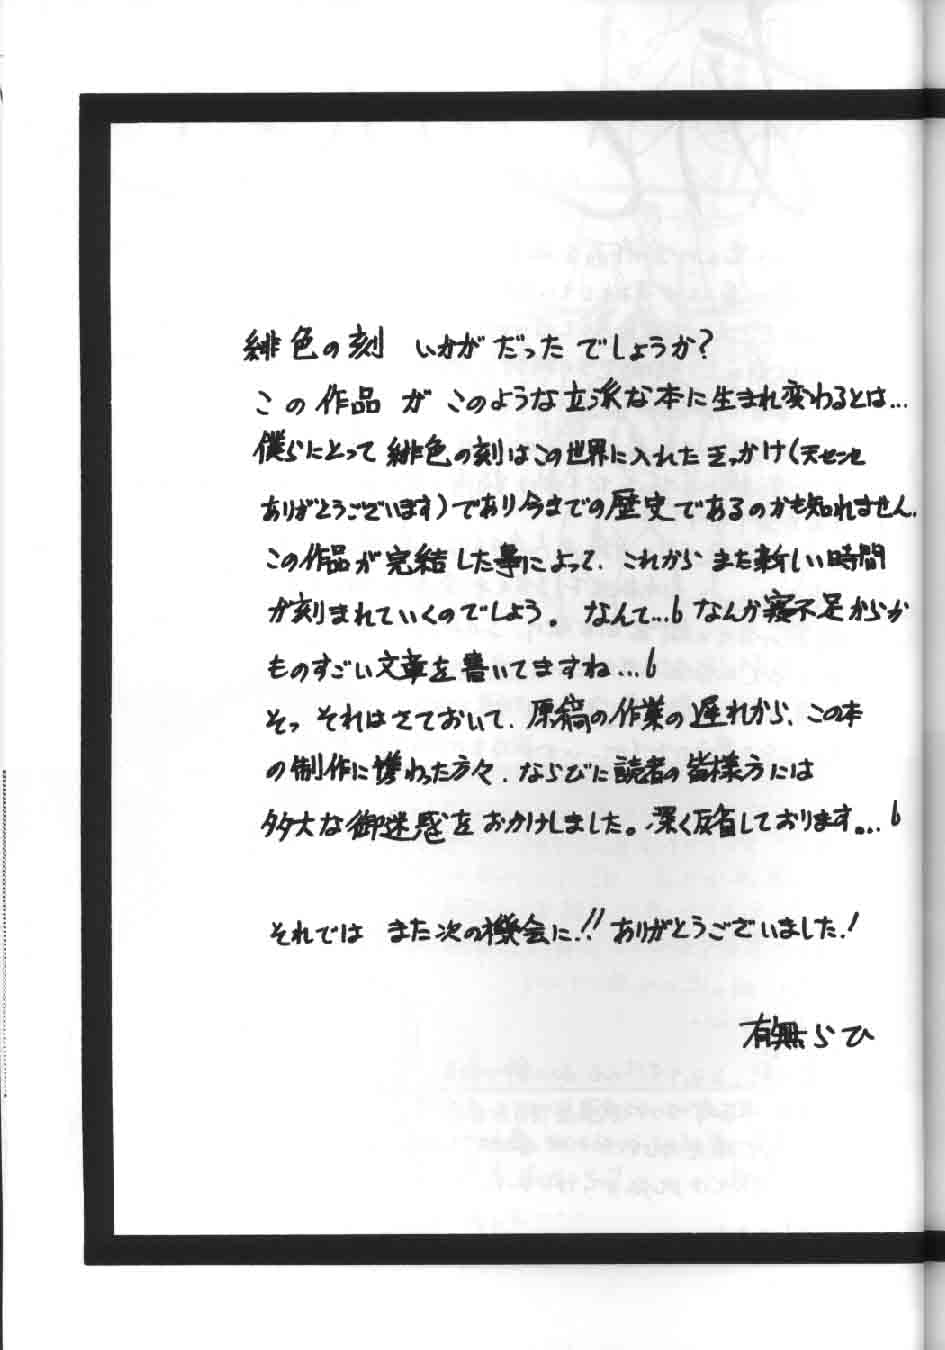 緋色の刻 いかがだったでしょうか?
この作品が このような立派な本に生まれ変わるとは…
僕らにとって緋色の刻はこの世界に入れたきっかけ(天センセ
ありがとうございます)であり今までの歴史であるのかも知れません.
この作品が完結した事によって、これからまた新しい時間
が刻まれていくのでしょう。なんて…6 なんか寝不足からか
ものすごい文章を書いてますね…6
そっ それはさておいて、原稿の作業の遅れから、この本
の制作に携わった方々、ならびに読者の皆様方には
多大な御迷惑をおかけしました。深く反省しております。..6
それでは また次の機会に!! ありがとうございました!
有無らひ